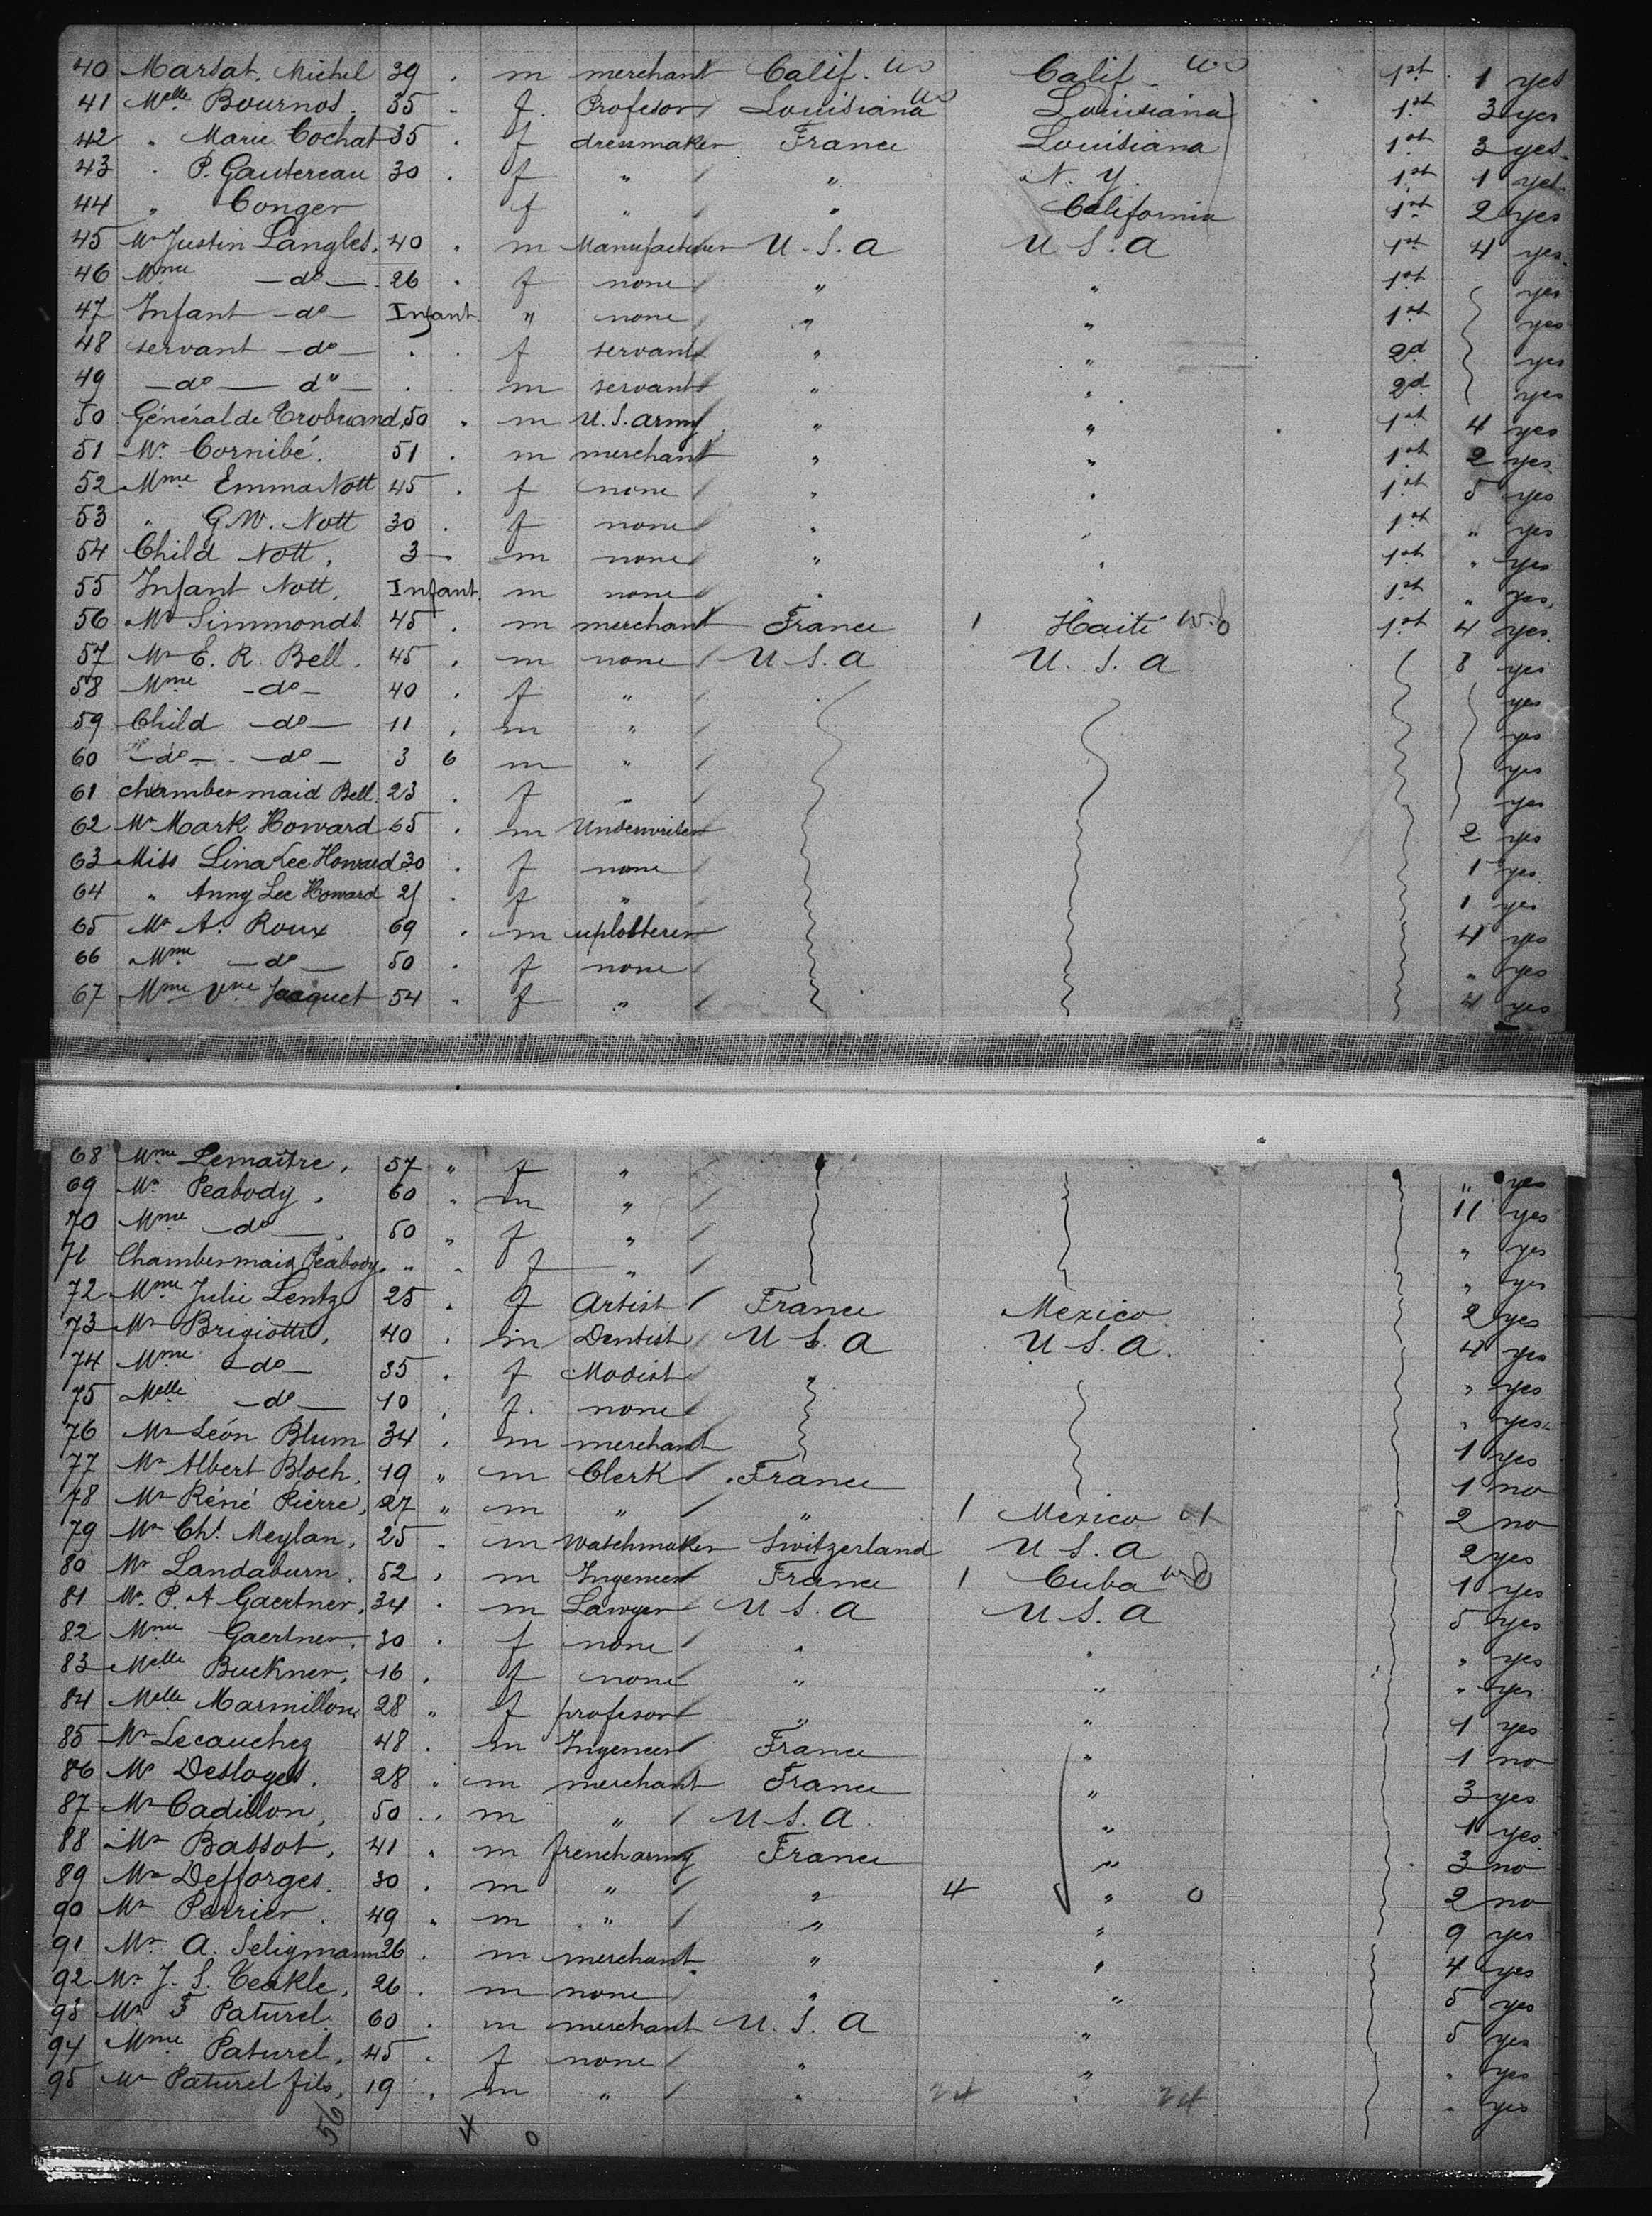 40 Marsat. Michel 39 . m merchant Calif. Calif 1st 1 yes
41 Melle Bournos. 35 . f. Profesor Louisiana Louisiana 1st 3 yes
42 " Marie Cochat 35 . f dressmaker France Louisiana 1st 3 yes
43 " P. Gautereau 30 . f " " N. Y. 1st 1 yes
44 " Conger f " " California 1st 2 yes
45 Mr Justin Langles. 40 . m Manufacturer U.S.A U.S.A 1st 4 yes
46 Mme —do— 26 . f none " " 1st yes
47 Infant —do— Infant " none " " 1st yes
48 servant —do— . . f servant " " 2d yes
49 —do— do— . . m servant " " 2d yes
50 Général de Trobriand 50 . m U.S. army " " 1st 4 yes
51 Mr Cornibé. 51 . m merchant " " 1st 2 yes
52 Mme Emma Nott 45 . f none " " 1st 5 yes
53 " G.W. Nott 30 . f none " " 1st " yes
54 Child Nott. 3 — m none " " 1st " yes
55 Infant Nott. Infant. m none " " 1st " yes
56 Mr Simmonds 45 . m merchant France 1 Haiti 1st 4 yes
57 Mr E. R. Bell. 45 . m none U.S.A U.S.A 8 yes
58 Mme —do— 40 . f " yes
59 Child —do— 11 . m " yes
60 —do— —do— 3 6 m " yes
61 chambermaid Bell. 23 . f " yes
62 Mr Mark Howard 65 . m Underwriter 2 yes
63 Miss Lina Lee Howard 30 . f none 1 yes
64 " Anny Lee Howard 21 . f " 1 yes
65 Mr A. Roux 69 . m uplostterer 4 yes
66 Mme —do— 50 . f none " yes
67 Mme Vve Jacquet 54 " f " 4 yes
68 Mme Lemaître. 57 " f " " yes
69 Mr Peabody. 60 . m " 11 yes
70 Mme —do—. 50 " f " " yes
71 Chambermaid Peabody. " " f " " yes
72 Mme Julie Lentz 25 . f Artist France Mexico 2 yes
73 Mr Brigiotti, 40 . m Dentist U.S.A U.S.A. 4 yes
74 Mme —do— 35 . f Modist " yes
75 Melle —do— 10 . f. none " yes
76 Mr Léon Blum 34 . m merchant 1 yes
77 Mr Albert Bloch. 19 " m Clerk France 1 no
78 Mr Réné Pierre, 27 " m " " 1 Mexico 2 no
79 Mr Chs. Meylan. 25 . m watchmaker Switzerland U.S.A 2 yes
80 Mr Landaburn. 52 . m Ingeneer France 1 Cuba 1 yes
81 Mr P. A Gaertner. 34 . m Lawyer U.S.A U.S.A 5 yes
82 Mme Gaertner. 30 . f none " " " yes
83 Melle Buckner. 16 . f none " " " yes
84 Melle Marmillon 28 " f profesor " " 1 yes
85 Mr Lecauchez 48 . m Ingeneer France " 1 no
86 Mr Desloges. 28 . m merchant France " 3 yes
87 Mr Cadillon, 50 . m " U.S.A. " 1 yes
88 Mr Bassot. 41 . m french army France " 3 no
89 Mr Defforges. 30 . m " " 4 " 0 2 no
90 Mr Perrier. 49 . m " " " 9 yes
91 Mr A. Seligmann 26 . m merchant " " 4 yes
92 Mr J. S. Teakle. 26 . m none " " 5 yes
93 Mr F Paturel. 60 . m merchant U.S.A " 5 yes
94 Mme Paturel. 45 . f none " " " yes
95 Mr Paturel fils. 19 . m " " 24 " 24 " yes
56 4 0